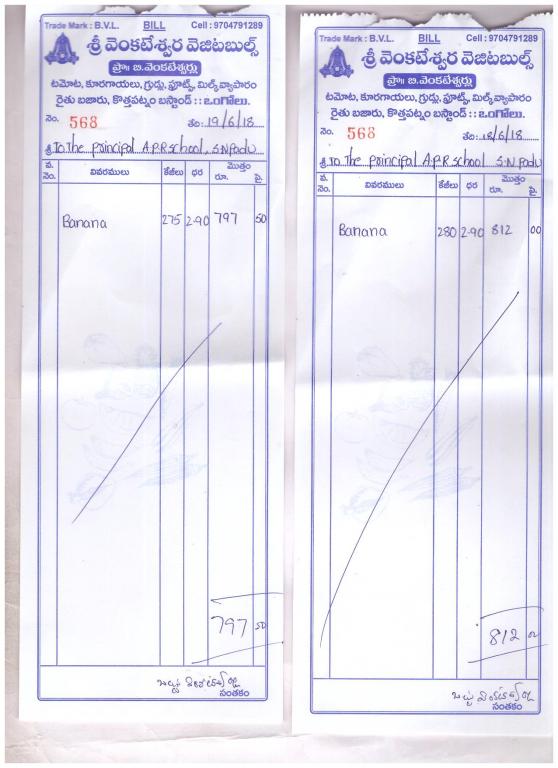 Trade Mark : B.V.L. BILL Cell : 9704791289
శ్రీ వెంకటేశ్వర వెజిటబుల్స్
ప్రొ॥ బి.వెంకటేశ్వర్లు
టమోట, కూరగాయలు, గ్రుడ్లు, ఫ్రూట్స్, మిల్క్ వ్యాపారం
రైతు బజారు, కొత్తపట్నం బస్టాండ్ : : ఒంగోలు.
నెం. 568 తేది: 19/6/18
శ్రీ To The principal A.P.R school, S.N padu
వ. నెం. వివరములు కేజీలు ధర మొత్తం రూ. పై.
Banana 275 2-90 797 50
797 50
సంతకం
Trade Mark : B.V.L. BILL Cell : 9704791289
శ్రీ వెంకటేశ్వర వెజిటబుల్స్
ప్రొ॥ బి.వెంకటేశ్వర్లు
టమోట, కూరగాయలు, గ్రుడ్లు, ఫ్రూట్స్, మిల్క్ వ్యాపారం
రైతు బజారు, కొత్తపట్నం బస్టాండ్ : : ఒంగోలు.
నెం. 568 తేది: 18/6/18
శ్రీ To The principal A.P.R school S.N padu
వ. నెం. వివరములు కేజీలు ధర మొత్తం రూ. పై.
Banana 280 2-90 812 00
812
సంతకం